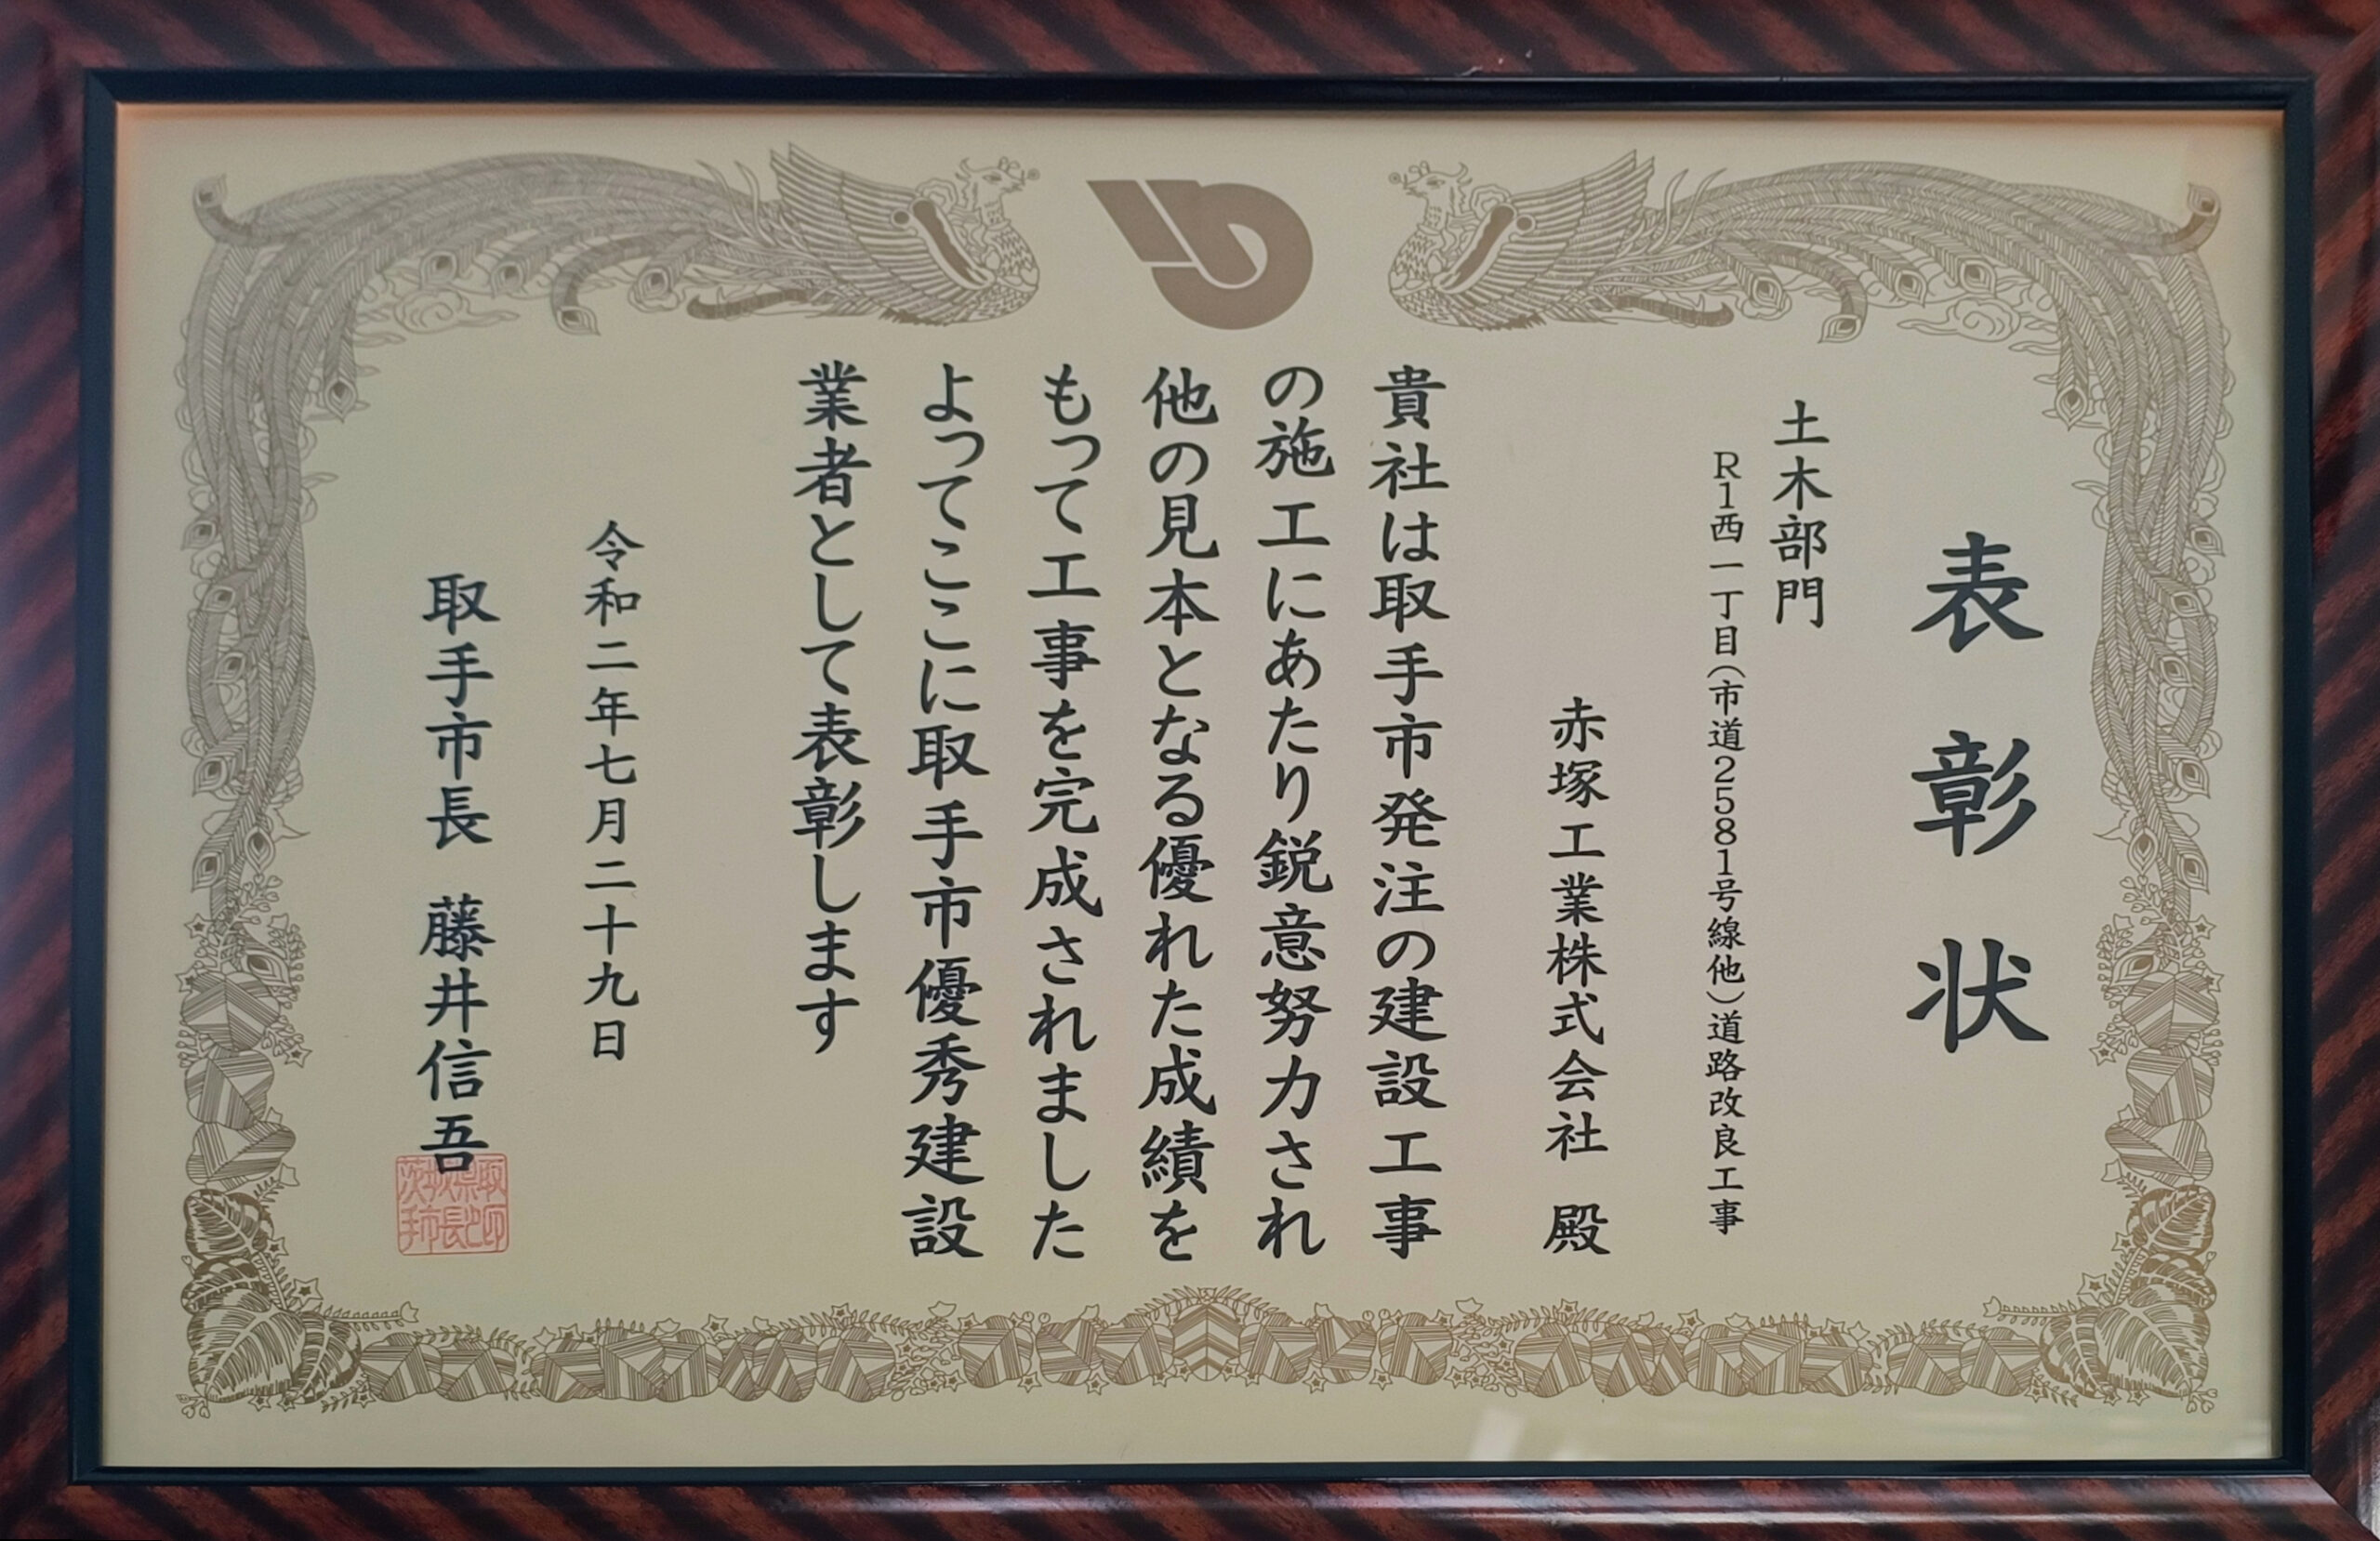 表彰状
土木部門
R1西一丁目(市道2581号線他)道路改良工事
赤塚工業株式会社 殿
貴社は取手市発注の建設工事
の施工にあたり鋭意努力され
他の見本となる優れた成績を
もって工事を完成されました
よってここに取手市優秀建設
業者として表彰します
令和二年七月二十九日
取手市長 藤井信吾